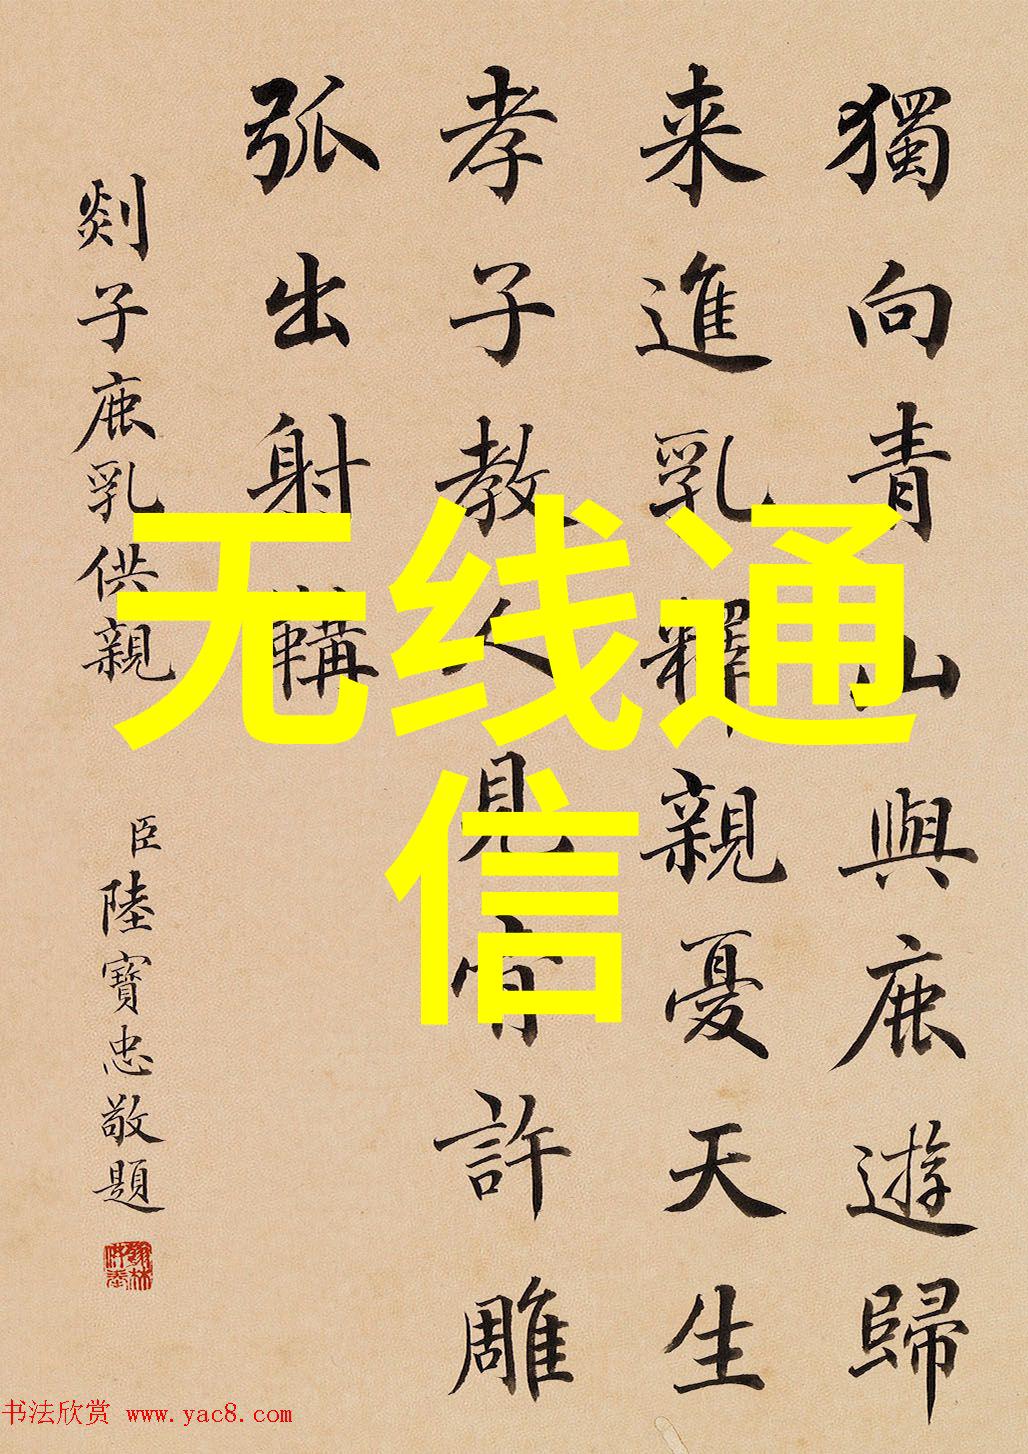 獨向青山與鹿遊歸
来進乳釋親憂天生
孝子教人見肯許雕
弧出射
剡子鹿乳供親
臣陸寶忠敬題
无线通
信
书法欣赏 www.yac8.com